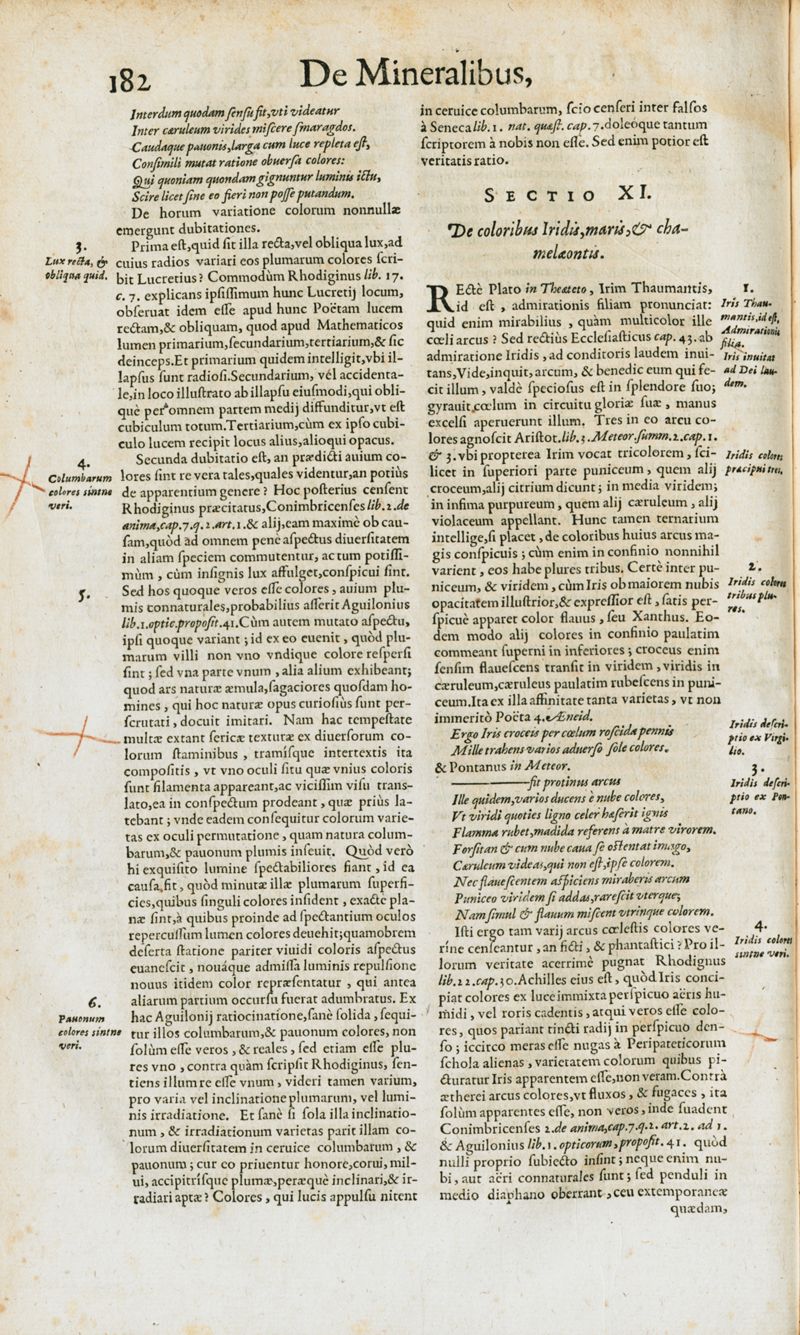 182
De Mineralibus,
Interdum quodam ſenſu fit,vti videatur
Inter cæruleum virides miſcere ſmaragdos.
Caudaque pauonis,larga cum luce repleta eſt,
Conſimili mutat ratione obuerſa colores:
Qui quoniam quondam gignuntur luminis ictu,
Scire licet ſine eo fieri non poſſe putandum.
De horum variatione colorum nonnullæ
emergunt dubitationes.
3.
Lux recta, &
obliqua quid.
Prima eſt,quid ſit illa recta,vel obliqua lux,ad
cuius radios variari eos plumarum colores ſcri-
bit Lucretius? Commodùm Rhodiginus lib. 17.
c. 7. explicans ipſiſſimum hunc Lucretij locum,
obſeruat idem eſſe apud hunc Poëtam lucem
rectam,& obliquam, quod apud Mathematicos
lumen primarium,ſecundarium,tertiarium,& ſic
deinceps.Et primarium quidem intelligit,vbi il-
lapſus ſunt radioſi.Secundarium, vel accidenta-
le,in loco illuſtrato ab illapſu eiuſmodi,qui obli-
què per omnem partem medij diffunditur,vt eſt
cubiculum totum.Tertiarium,cùm ex ipſo cubi-
culo lucem recipit locus alius,alioqui opacus.
4.
Columbarum
colores sintne
veri.
Secunda dubitatio eſt, an prædicti auium co-
lores ſint re vera tales,quales videntur,an potiùs
de apparentium genere? Hoc poſterius cenſent
Rhodiginus præcitatus,Conimbricenſes lib.2.de
anima,cap.7.q.2.art.1.& alij,eam maximè ob cau-
ſam,quòd ad omnem penè aſpectus diuerſitatem
in aliam ſpeciem commutentur, ac tum potiſſi-
mùm , cùm inſignis lux affulget,conſpicui ſint.
5.
Sed hos quoque veros eſſe colores , auium plu-
mis connaturales,probabilius aſſerit Aguilonius
lib.1.optic.propoſit.41.Cùm autem mutato aſpectu,
ipſi quoque variant ; id ex eo euenit , quòd plu-
marum villi non vno vndique colore reſperſi
ſint ; ſed vna parte vnum , alia alium exhibeant;
quod ars naturæ æmula,ſagaciores quoſdam ho-
mines , qui hoc naturæ opus curioſiùs ſunt per-
ſcrutati , docuit imitari. Nam hac tempeſtate
multæ extant ſericæ texturæ ex diuerſorum co-
lorum ſtaminibus , tramíſque intertextis ita
compoſitis , vt vno oculi ſitu quæ vnius coloris
ſunt filamenta appareant,ac viciſſim viſu trans-
lato,ea in conſpectum prodeant , quæ priùs la-
tebant ; vnde eadem conſequitur colorum varie-
tas ex oculi permutatione , quam natura colum-
barum,& pauonum plumis inſeuit. Quòd verò
hi exquiſito lumine ſpectabiliores fiant , id ea
cauſa,fit , quòd minutæ illæ plumarum ſuperfi-
cies,quibus ſinguli colores inſident , exactè pla-
næ ſint,à quibus proinde ad ſpectantium oculos
repercuſſum lumen colores deuehit;quamobrem
deſerta ſtatione pariter viuidi coloris aſpectus
euaneſcit , nouáque admiſſa luminis repulſione
nouus itidem color repræſentatur , qui antea
aliarum partium occurſu fuerat adumbratus. Ex
6.
Pauonum
colores sintne
veri.
hac Aguilonij ratiocinatione,ſanè ſolida , ſequi-
tur illos columbarum,& pauonum colores, non
ſolùm eſſe veros , & reales , ſed etiam eſſe plu-
res vno , contra quàm ſcripſit Rhodiginus, ſen-
tiens illum re eſſe vnum , videri tamen varium,
pro varia vel inclinatione plumarum, vel lumi-
nis irradiatione. Et ſanè ſi ſola illa inclinatio-
num , & irradiationum varietas parit illam co-
lorum diuerſitatem in ceruice columbarum , &
pauonum ; cur eo priuentur honore,corui, mil-
ui, accipitríſque plumæ,peræquè inclinari,& ir-
radiari aptæ? Colores , qui lucis appulſu nitent
in ceruice columbarum, ſcio cenſeri inter falſos
à Seneca lib.1. nat. quæſt. cap.7.doleóque tantum
ſcriptorem à nobis non eſſe. Sed enim potior eſt
veritatis ratio.
SECTIO XI.
De coloribus Iridis,maris,& cha-
melæontis.
1.
Iris Thau-
mantis,id eſt,
Admirationis
filia.
Iris inuitat
ad Dei lau-
dem.
REctè Plato in Theæteto , Irim Thaumantis,
id eſt , admirationis filiam pronunciat:
quid enim mirabilius , quàm multicolor ille
cœli arcus ? Sed rectiùs Eccleſiaſticus cap. 43. ab
admiratione Iridis , ad conditoris laudem inui-
tans,Vide,inquit,arcum, & benedic eum qui fe-
cit illum , valdè ſpecioſus eſt in ſplendore ſuo;
gyrauit cœlum in circuitu gloriæ ſuæ , manus
excelſi aperuerunt illum. Tres in eo arcu co-
lores agnoſcit Ariſtot.lib.3.Meteor.ſumm.2.cap.1.
Iridis colores
præcipui tres.
& 3.vbi propterea Irim vocat tricolorem , ſci-
licet in ſuperiori parte puniceum , quem alij
croceum,alij citrium dicunt ; in media viridem;
in infima purpureum , quem alij cæruleum , alij
violaceum appellant. Hunc tamen ternarium
intellige,ſi placet , de coloribus huius arcus ma-
gis conſpicuis ; cùm enim in confinio nonnihil
2.
Iridis colores
tribus plu-
res.
varient , eos habe plures tribus. Certè inter pu-
niceum, & viridem , cùm Iris ob maiorem nubis
opacitatem illuſtrior,& expreſſior eſt , ſatis per-
ſpicuè apparet color flauus , ſeu Xanthus. Eo-
dem modo alij colores in confinio paulatim
commeant ſuperni in inferiores ; croceus enim
ſenſim flaueſcens tranſit in viridem , viridis in
cæruleum,cæruleus paulatim rubeſcens in puni-
ceum.Ita ex illa affinitate tanta varietas , vt non
immeritò Poëta 4.Æneid.
Iridis deſcri-
ptio ex Virgi-
lio.
Ergo Iris croceis per cœlum roſcida pennis
Mille trahens varios aduerſo ſole colores.
& Pontanus in Meteor.
3.
Iridis deſcri-
ptio ex Pon-
tano.
—fit protinus arcus
Ille quidem,varios ducens è nube colores,
Vt viridi quoties ligno celer hæſerit ignis
Flamma rubet,madida referens à matre virorem.
Forſitan & cum nube caua ſe oſtentat imago,
Cæruleum videas,qui non eſt,ipſe colorem.
Nec flaueſcentem aſpiciens miraberis arcum
Puniceo viridem ſi addas,rareſcit vterque;
Nam ſimul & flauum miſcent vtrinque colorem.
4.
Iridis colores
sintne veri.
Iſti ergo tam varij arcus cœleſtis colores ve-
rine cenſeantur , an ficti , & phantaſtici ? Pro il-
lorum veritate acerrimè pugnat Rhodignus
lib.22.cap.30.Achilles eius eſt , quòd Iris conci-
piat colores ex luce immixta perſpicuo aëris hu-
midi , vel roris cadentis , atqui veros eſſe colo-
res , quos pariant tincti radij in perſpicuo den-
ſo ; iccirco meras eſſe nugas à Peripateticorum
ſchola alienas , varietatem colorum quibus pi-
cturatur Iris apparentem eſſe,non veram.Contrà
ætherei arcus colores,vt fluxos , & fugaces , ita
ſolùm apparentes eſſe, non veros , inde ſuadent
Conimbricenſes 2.de anima,cap.7.q.2.art.2. ad 1.
& Aguilonius lib.1.opticorum,propoſit.41. quòd
nulli proprio ſubiecto inſint ; neque enim nu-
bi , aut aëri connaturales ſunt ; ſed penduli in
medio diaphano oberrant , ceu extemporaneæ
quædam,